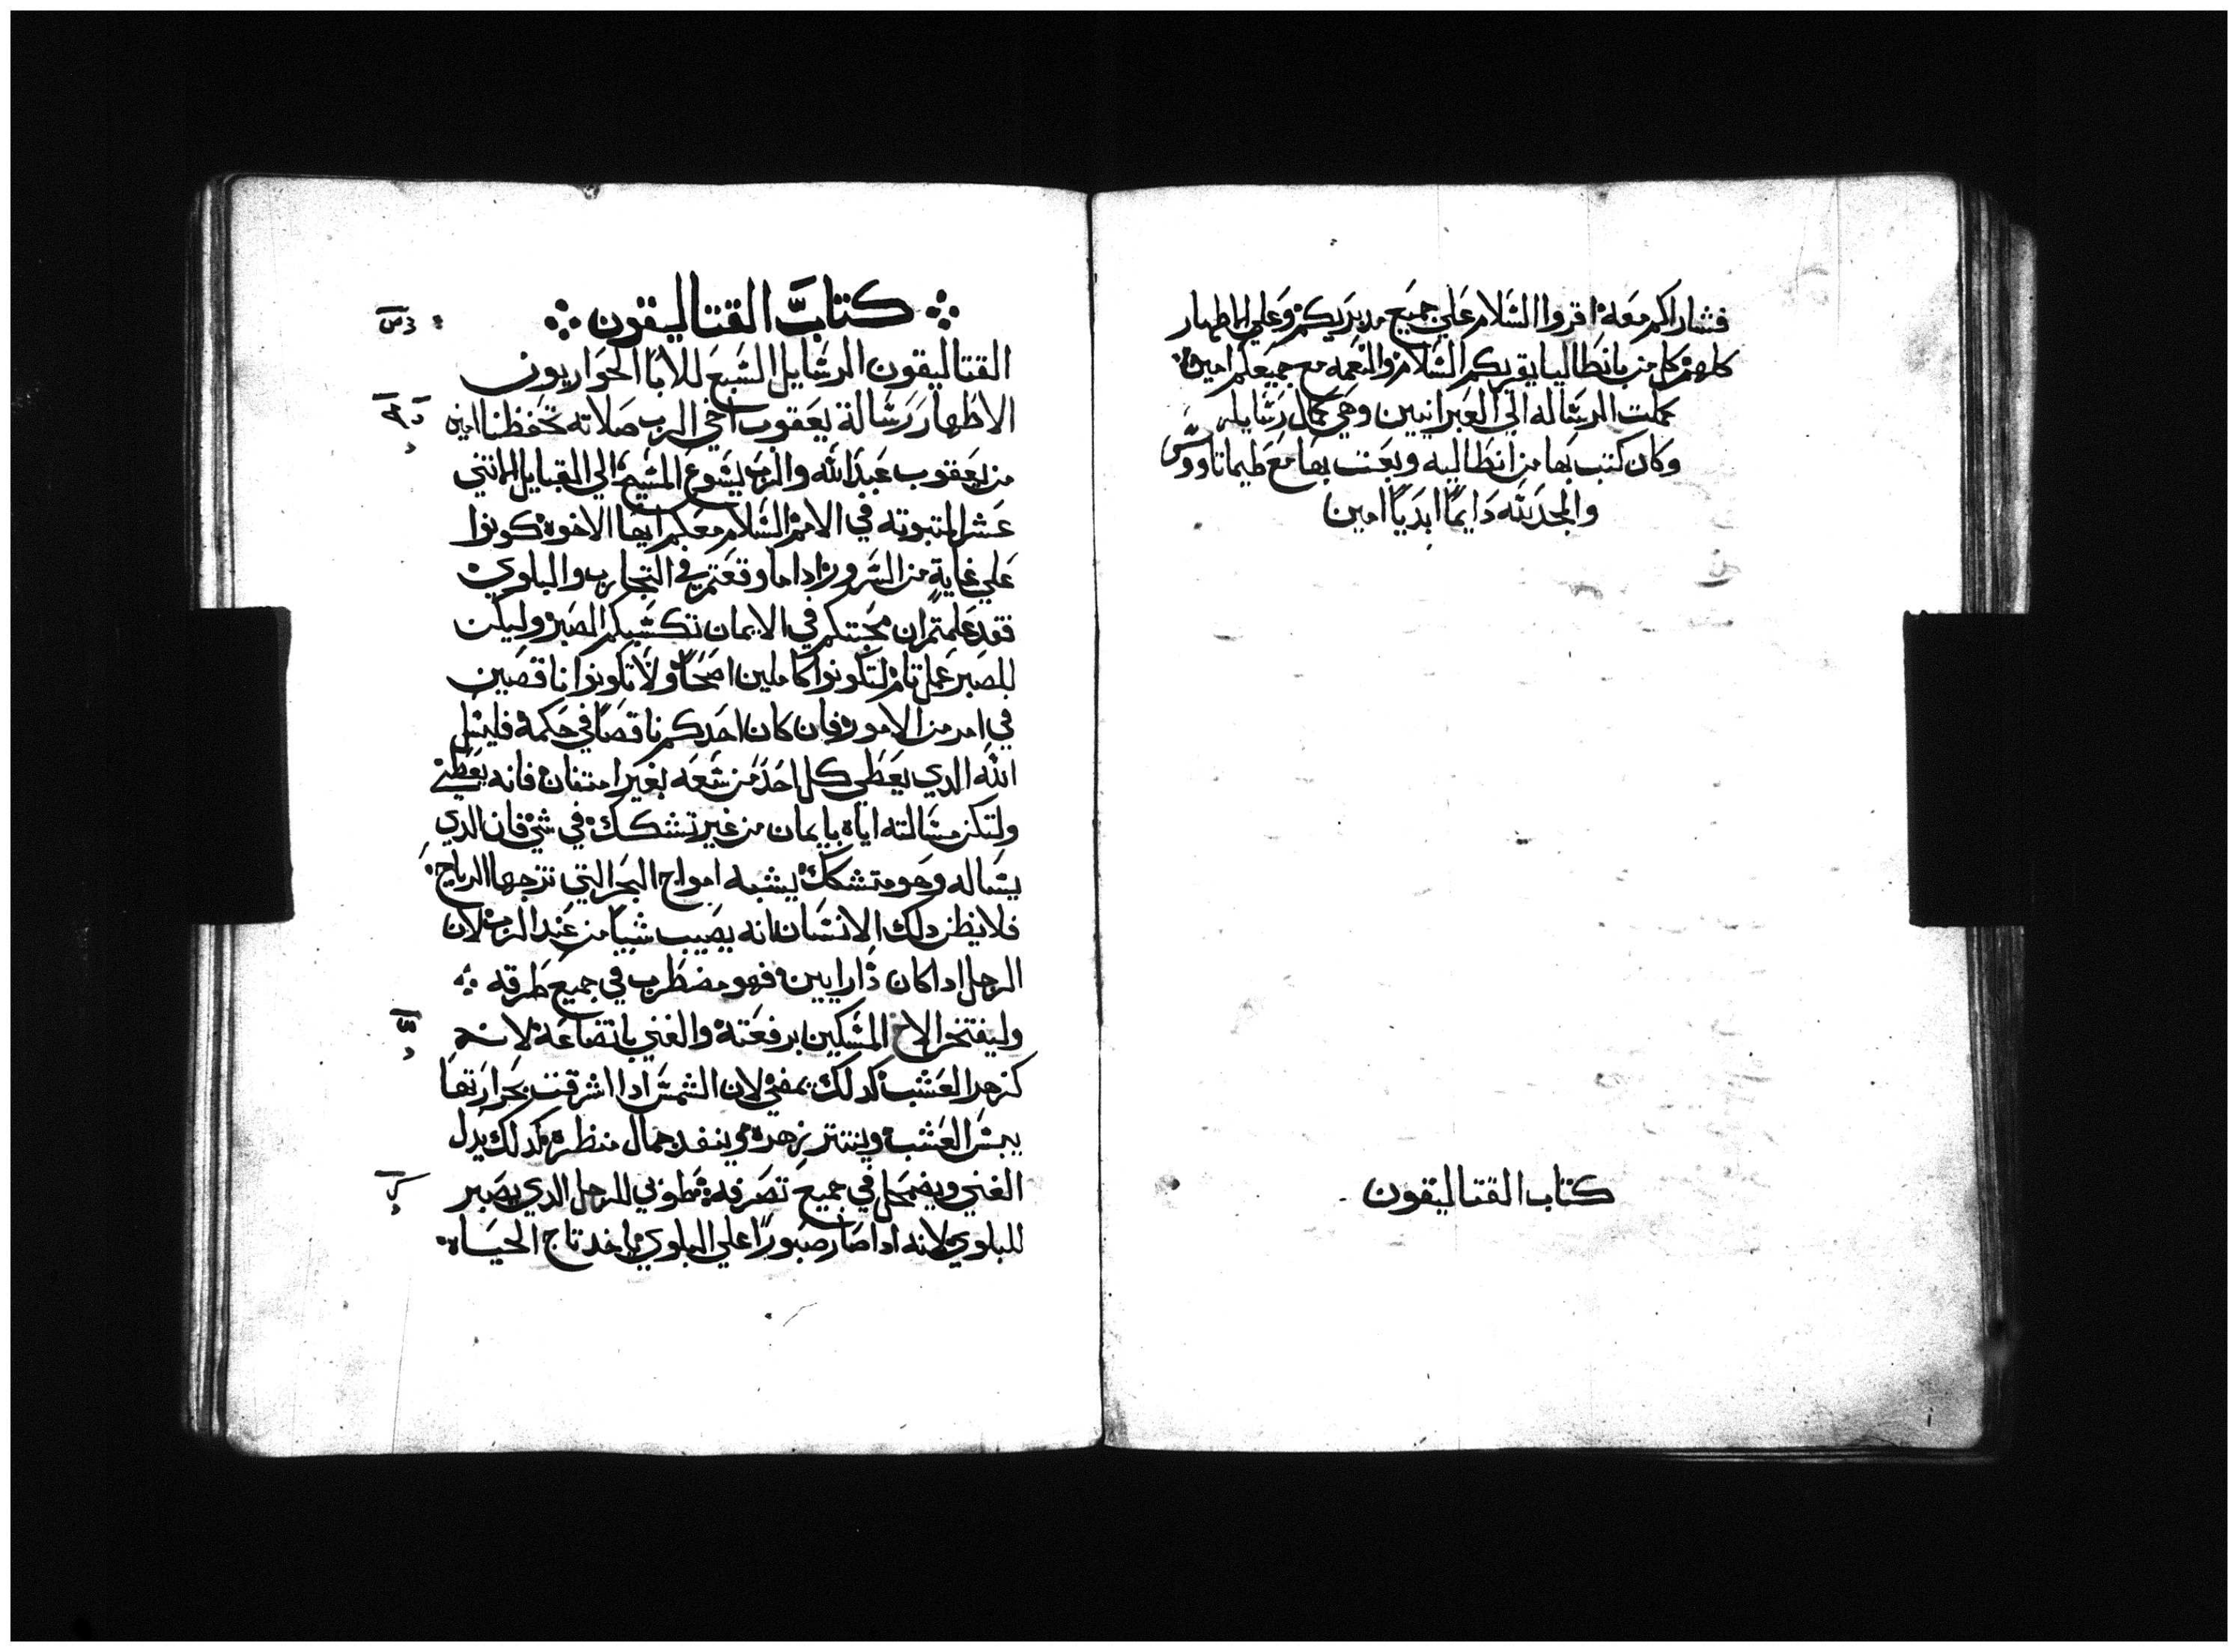 فساراكم معه اقروا السلام علي جميع مدبريكم وعلي الاطهار
كلهم كل من بانطاليا يقريكم السلام والنعمه مع جميعكم امين
كملت الرساله الي العبرانيين وهي كمال رسايله
وكان كتب بها من انطاليه وبعث بها مع طيماتاووس
والمجد لله دايما ابديا امين
كتاب القتاليقون
كتاب القتاليقون
القتاليقون الرسايل السبع للابا الحواريون
الاطهار رسالة يعقوب اخي الرب صلاته تحفظنا امين
من يعقوب عبد الله والرب يسوع المسيح الي القبايل الاثني
عشر المتبوته في الامم السلام معكم ايها الاخوه كونوا
علي غاية من السرور ادا ما وقعتم في التجارب والبلوي
فقد علمتم ان محنتكم في الايمان تكسبكم الصبر وليكن
للصبر عمل تام لتكونوا كاملين اصحا ولا تكونوا ناقصين
في امر من الامور فان كان احدكم ناقصا في حكمة فليسل
الله الدي يعطي كل احد من سعه بغير امتنان فانه يعطي
ولتكن مسالته اياه بايمان من غير تشكك في شي فان الدي
يساله وهو متشكك يشبه امواج البحر التي تزجها الرياح
فلا يظن دلك الانسان انه يصيب شيا من عند الرب لان
الرجل ادا كان دا رايين فهو مضطرب في جميع طرقه
وليفتخر الاخ المسكين برفعته والغني باتضاعه لانه
كزهر العشب كدلك يمضي لان الشمس ادا اشرقت بحرارتها
يبس العشب وينتتر زهره وينفد جمال منظره كدلك يدل
الغني ويضمحل في جميع تصرفه فطوبي للرجل الدي يصبر
للبلوي لانه ادا صار صبورا علي البلوي ياخد تاج الحياه